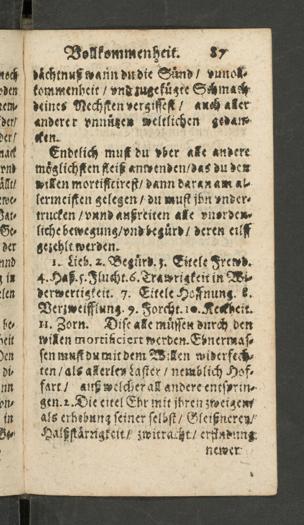 Vollkommenheit. 87
dächtnuß wann du die Sünd / vnvoll-
kommenheit / vnd zugefügte Schmach
deines Nechsten vergissest / auch aller
anderer vnnützen weltlichen gedan-
cken.
Endtlich must du vber alle andere
möglichsten fleiß anwenden / das du den
willen mortificirest / dann daran am al-
lermeisten gelegen / du must jhn vnder-
trucken / vnnd außreiten alle vnorden-
liche bewegung / vnd begürd / deren eilff
gezehlt werden.
1. Lieb. 2. Begürd. 3. Eitele Frewd.
4. Haß. 5. Flucht. 6. Trawrigkeit in Wi-
derwertigkeit. 7. Eitele Hoffnung. 8.
Verzweifflung. 9. Forcht. 10. Keckheit.
11. Zorn. Dise alle müssen durch den
willen mortificiert werden. Ebnermas-
sen must du mit dem Willen widerfech-
ten / als allerley Laster / nemblich Hof-
fart / auß welcher all andere entsprin-
gen. 2. Die eitel Ehr mit jhren zweigen /
als erhebung seiner selbst / Gleißnerey /
Halßstärrigkeit / zwitracht / erfindung
newer